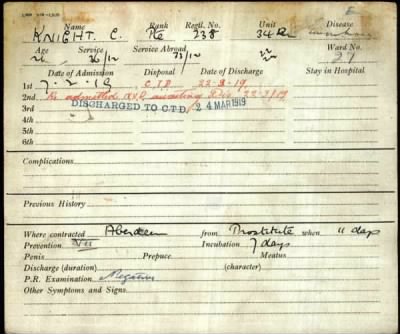 Name Rank Regtl. No. Unit Disease
KNIGHT. C. Pte 238 34 Bn
Age Service Service Abroad Ward No.
26 36/12 33/12 27
Date of Admission Disposal Date of Discharge Stay in Hospital
1st 7.2.19 C.T.D 22-3-19
2nd Re admitted awaiting 22-3-19
3rd DISCHARGED TO C.T.D. 24 MAR 1919
4th
5th
6th
Complications
Previous History
Where contracted Aberdeen from Prostitute when 11 days
Prevention Nil Incubation 7 days
Penis Prepuce. Meatus
Discharge (duration) (character)
P.R. Examination Negative
Other Symptoms and Signs.